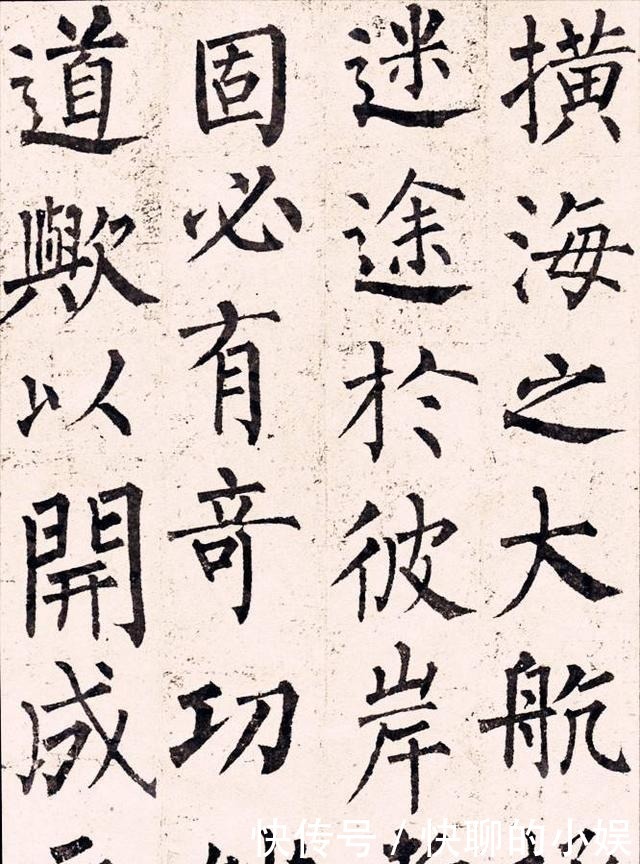 横海之大航
迷途於彼岸
固必有奇功
道歟以開成
快传号/快聊的小娱